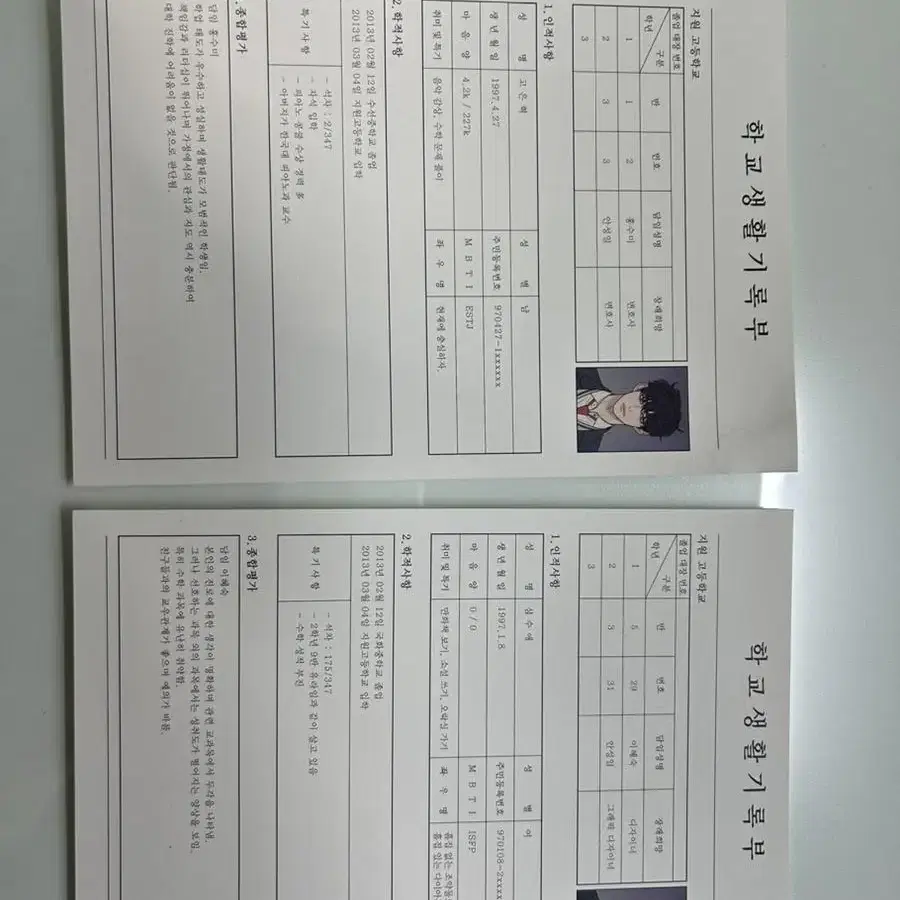 학교생활기록부
지원 고등학교
졸업 대장 번호
구분 학년 반 번호 담임성명 장래희망
1 1 2 홍수미 변호사
2 3 3 안성일 변호사
3
1.인적사항
성 명 고은혁 성 별 남
생년월일 1997.4.27 주민등록번호 970427-1xxxxxx
마음양 4.2k / 227k MBTI ESTJ
취미 및 특기 음악 감상, 수학 문제 풀이 좌우명 현재에 충실하자.
2.학적사항
2013년 02월 12일 수선중학교 졸업
2013년 03월 04일 지원고등학교 입학
특기사항
- 석차 : 2/347
- 차석 입학
- 피아노 콩쿨 수상 경력 多
- 아버지가 한국대 피아노과 교수
.종합평가
담임 홍수미
학업 태도가 우수하고 성실하며 생활태도가 모범적인 학생임.
책임감과 리더십이 뛰어나며 가정에서의 관심과 지도 역시 충분하여
대학 진학에 어려움이 없을 것으로 판단됨.
학교생활기록부
지원 고등학교
졸업 대장 번호
구분 학년 반 번호 담임성명 장래희망
1 5 29 이혜숙 디자이너
2 3 31 안성일 그래픽 디자이너
3
1.인적사항
성 명 심수애 성 별 여
생년월일 1997.1.8 주민등록번호 970108-2xxxx
마음양 0 / 0 MBTI ISFP
취미 및 특기 만화책 보기, 소설 쓰기, 오락실 가기 좌우명 흠집 없는 조약돌
흠집 있는 다이아
2.학적사항
2013년 02월 12일 국화중학교 졸업
2013년 03월 04일 지원고등학교 입학
특기사항
- 석차 : 175/347
- 2학년 9반 유라임과 같이 살고 있음
- 수학 성적 부진
3.종합평가
담임 이혜숙
본인의 진로에 대한 생각이 명확하며 관련 교과목에서 두각을 나타냄.
그러나 선호하는 과목 외의 과목에서는 성취도가 떨어지는 양상을 보임.
특히 수학 과목에 유난히 취약함.
친구들과의 교우관계가 좋으며 예의가 바름.